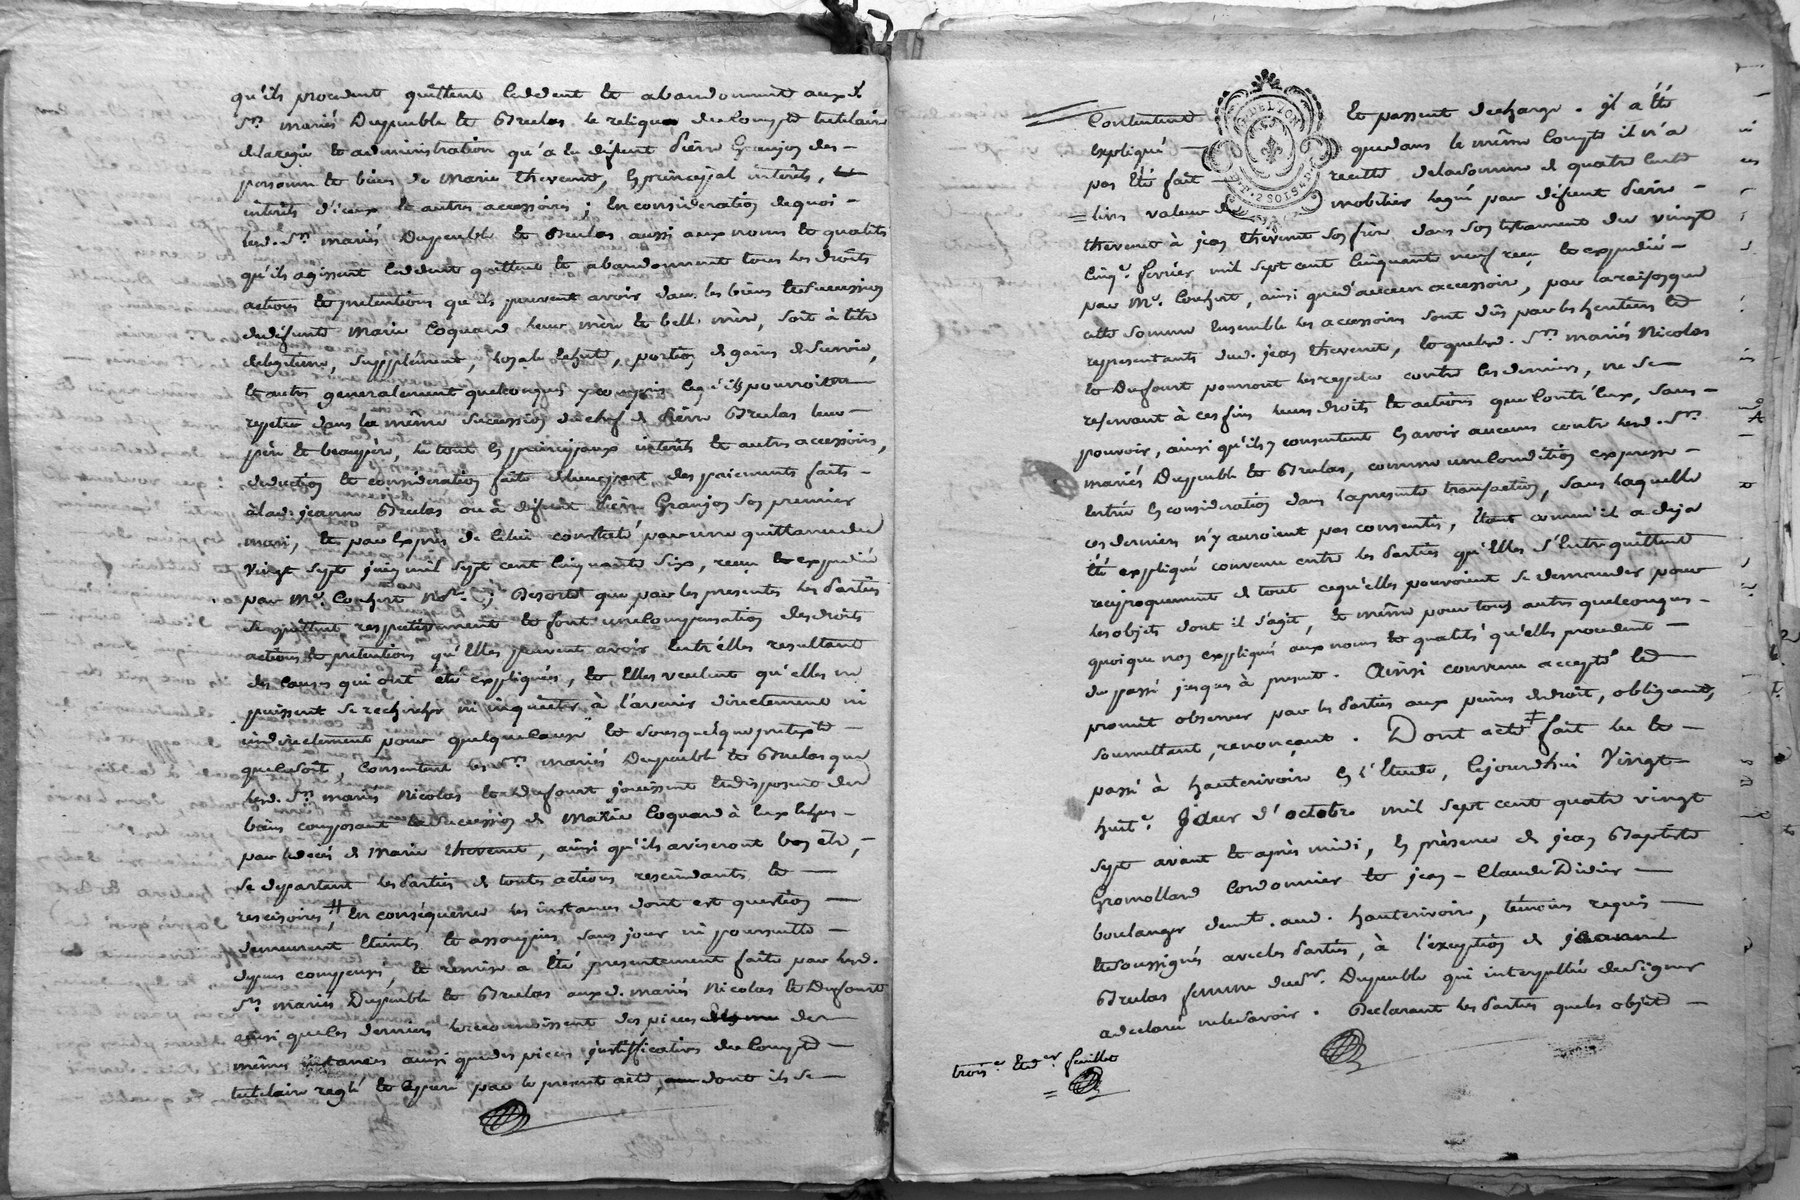 qu'ils procedent quittent cedent et abandonnent auxd.
Srs. mariés Dupeuble et Brulas le reliqua du compte tutelaire
delaregie et administration qu'a eu defunt Pierre Granjon des
personne et biens de Marie thevenet, en principal interêts,
interêts d'iceux et autres accessoires ; En consideration dequoi
lesd. Srs. mariés Dupeuble et Brulas aussi aux noms et qualités
qu'ils agissent cedent quittent et abandonnent tous les droits
actions et pretentions qu'ils peuvent avoir dans les biens et succession
dedefunte Marie Coquard leur mère et belle mère, soit à titre
delegitime, supplément, legs, portion de gains desurvie,
et autres generalement quelconques y compris ce qu'ils pourroient
repeter dans la même succession du chef de Pierre Brulas leur
père et beaupère, le tout en principaux interêts et autres accessoires,
deduction et consideration faite des payements faits
àlad. jeanne Brulas ou à defunt Pierre Granjon son premier
mari, et par exprès de celui constaté par une quittance du
vingt sept juin mil sept cent cinquante six, reçue et expediée
par Me. Confort Nore. ; Desorte que par les presentes les Parties
se quittent respectivement et font une compensation des droits
actions et pretentions qu'elles peuvent avoir entr'elles resultant
des causes qui ont été expliquées, et elles veulent qu'elles ne
puissent se rechercher ni inquieter à l'avenir directement ni
indirectement pour quelque cause et sous quelque pretexte
que ce soit, consentent les Srs. mariés Dupeuble et Brulas que
lesd. Srs. mariés Nicolas et Dufourt jouissent et disposent des
biens composant la succession de Marie Coquard à eux
par le decès de Marie thevenet, ainsi qu'ils aviseront bon être,
se departant les Parties de toutes actions rescindants et
rescisoires, # En consequence les instances dont est question
demeurent éteintes et assoupies sans jour ni poursuitte
depens compensés, et remise a été presentement faite par lesd.
Srs. mariés Dupeuble et Brulas auxd. mariés Nicolas et Dufourt
ainsi queles derniers le reconnoissent des pieces des
mêmes instances ainsi quedes pieces justifficatives du compte
tutelaire reglé et par le present acte, dont ils se
Contentent et passent decharge. Il a été
expliqué que dans le même compte il n'a
pas été fait recette delasomme de quatre cents
livres valeur de mobilier legué par defunt Pierre
G DE LYON
2 SOLS 4 D
thevenet à jean thevenet son frere dans son testament du vingt
cinqe. fevrier mil sept cent cinquante neuf reçu et expedié
par Me. Confort, ainsi que d'aucun accessoire, par la raison que
cette somme ensemble les accessoires sont dûs par les heritiers et
representants dud. jean thevenet, et que lesd. Srs. mariés Nicolas
et Dufourt pourront les repeter contre les derniers, ne se
reservant à ces fins leurs droits et actions que contr'eux, sans
pouvoir, ainsi qu'ils y consentent en avoir aucuns contre lesd. Srs.
mariés Dupeuble et Brulas, comme une condition expresse
entrée en consideration dans la presente transaction, sans laquelle
ces derniers n'y auroient pas consentis, étant comm'il a deja
été expliqué convenu entre les Parties qu'elles s'entrequittent
reciproquement de tout ce qu'elles pouvoient se demander pour
les objets dont il s'agit, et même pour tous autres quelconques
quoique non expliqués aux noms et qualités qu'elles procedent
du passé jusques à present. Ainsi convenu accepté et
promit observer par les Parties aux peines de droit, obligeant,
soumettant, renonçant. Dont acte ‡ fait lu et
passé à hauterivoire en l'Etude, Cejourd'hui Vingt
huite. Jour d'octobre mil sept cent quatre vingt
sept avant et après midi, En présence de jean Baptiste
Gromolland Cordonnier et jean-Claude Didier
boulanger demt. aud. hauterivoire, témoins requis
et soussignés avec les Parties, à l'exception de jeanne
Brulas femme dud. Sr. Dupeuble qui interpellée de signer
a declaré ne le savoir. Declarant les Parties que les objets
troise. et der. feuillet